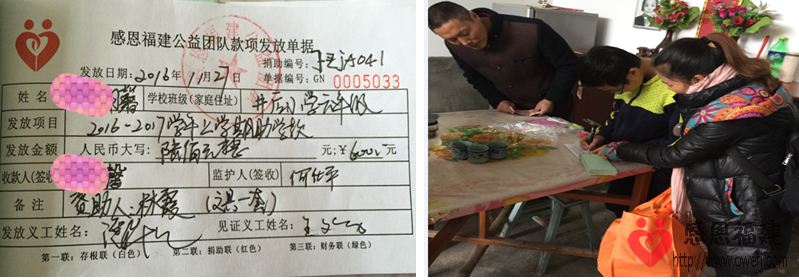 感恩福建公益团队款项发放单据
捐助编号:
发放日期:2016年11月27日 单据编号:GN 0005033
姓名 馨 学校班级(家庭住址) 小学六年级
发放项目 2016-2017学年上学期助学款
发放金额 人民币大写:陆佰元整 元;¥600元
收款人(签收) 馨 监护人(签收)
备注 资助人:林霞 (文具一套)
发放义工姓名: 见证义工姓名:
第一联:存根联(白色) 第二联:捐助联(红色) 第三联:财务联(绿色)
感恩福建
http://www.owefj.com